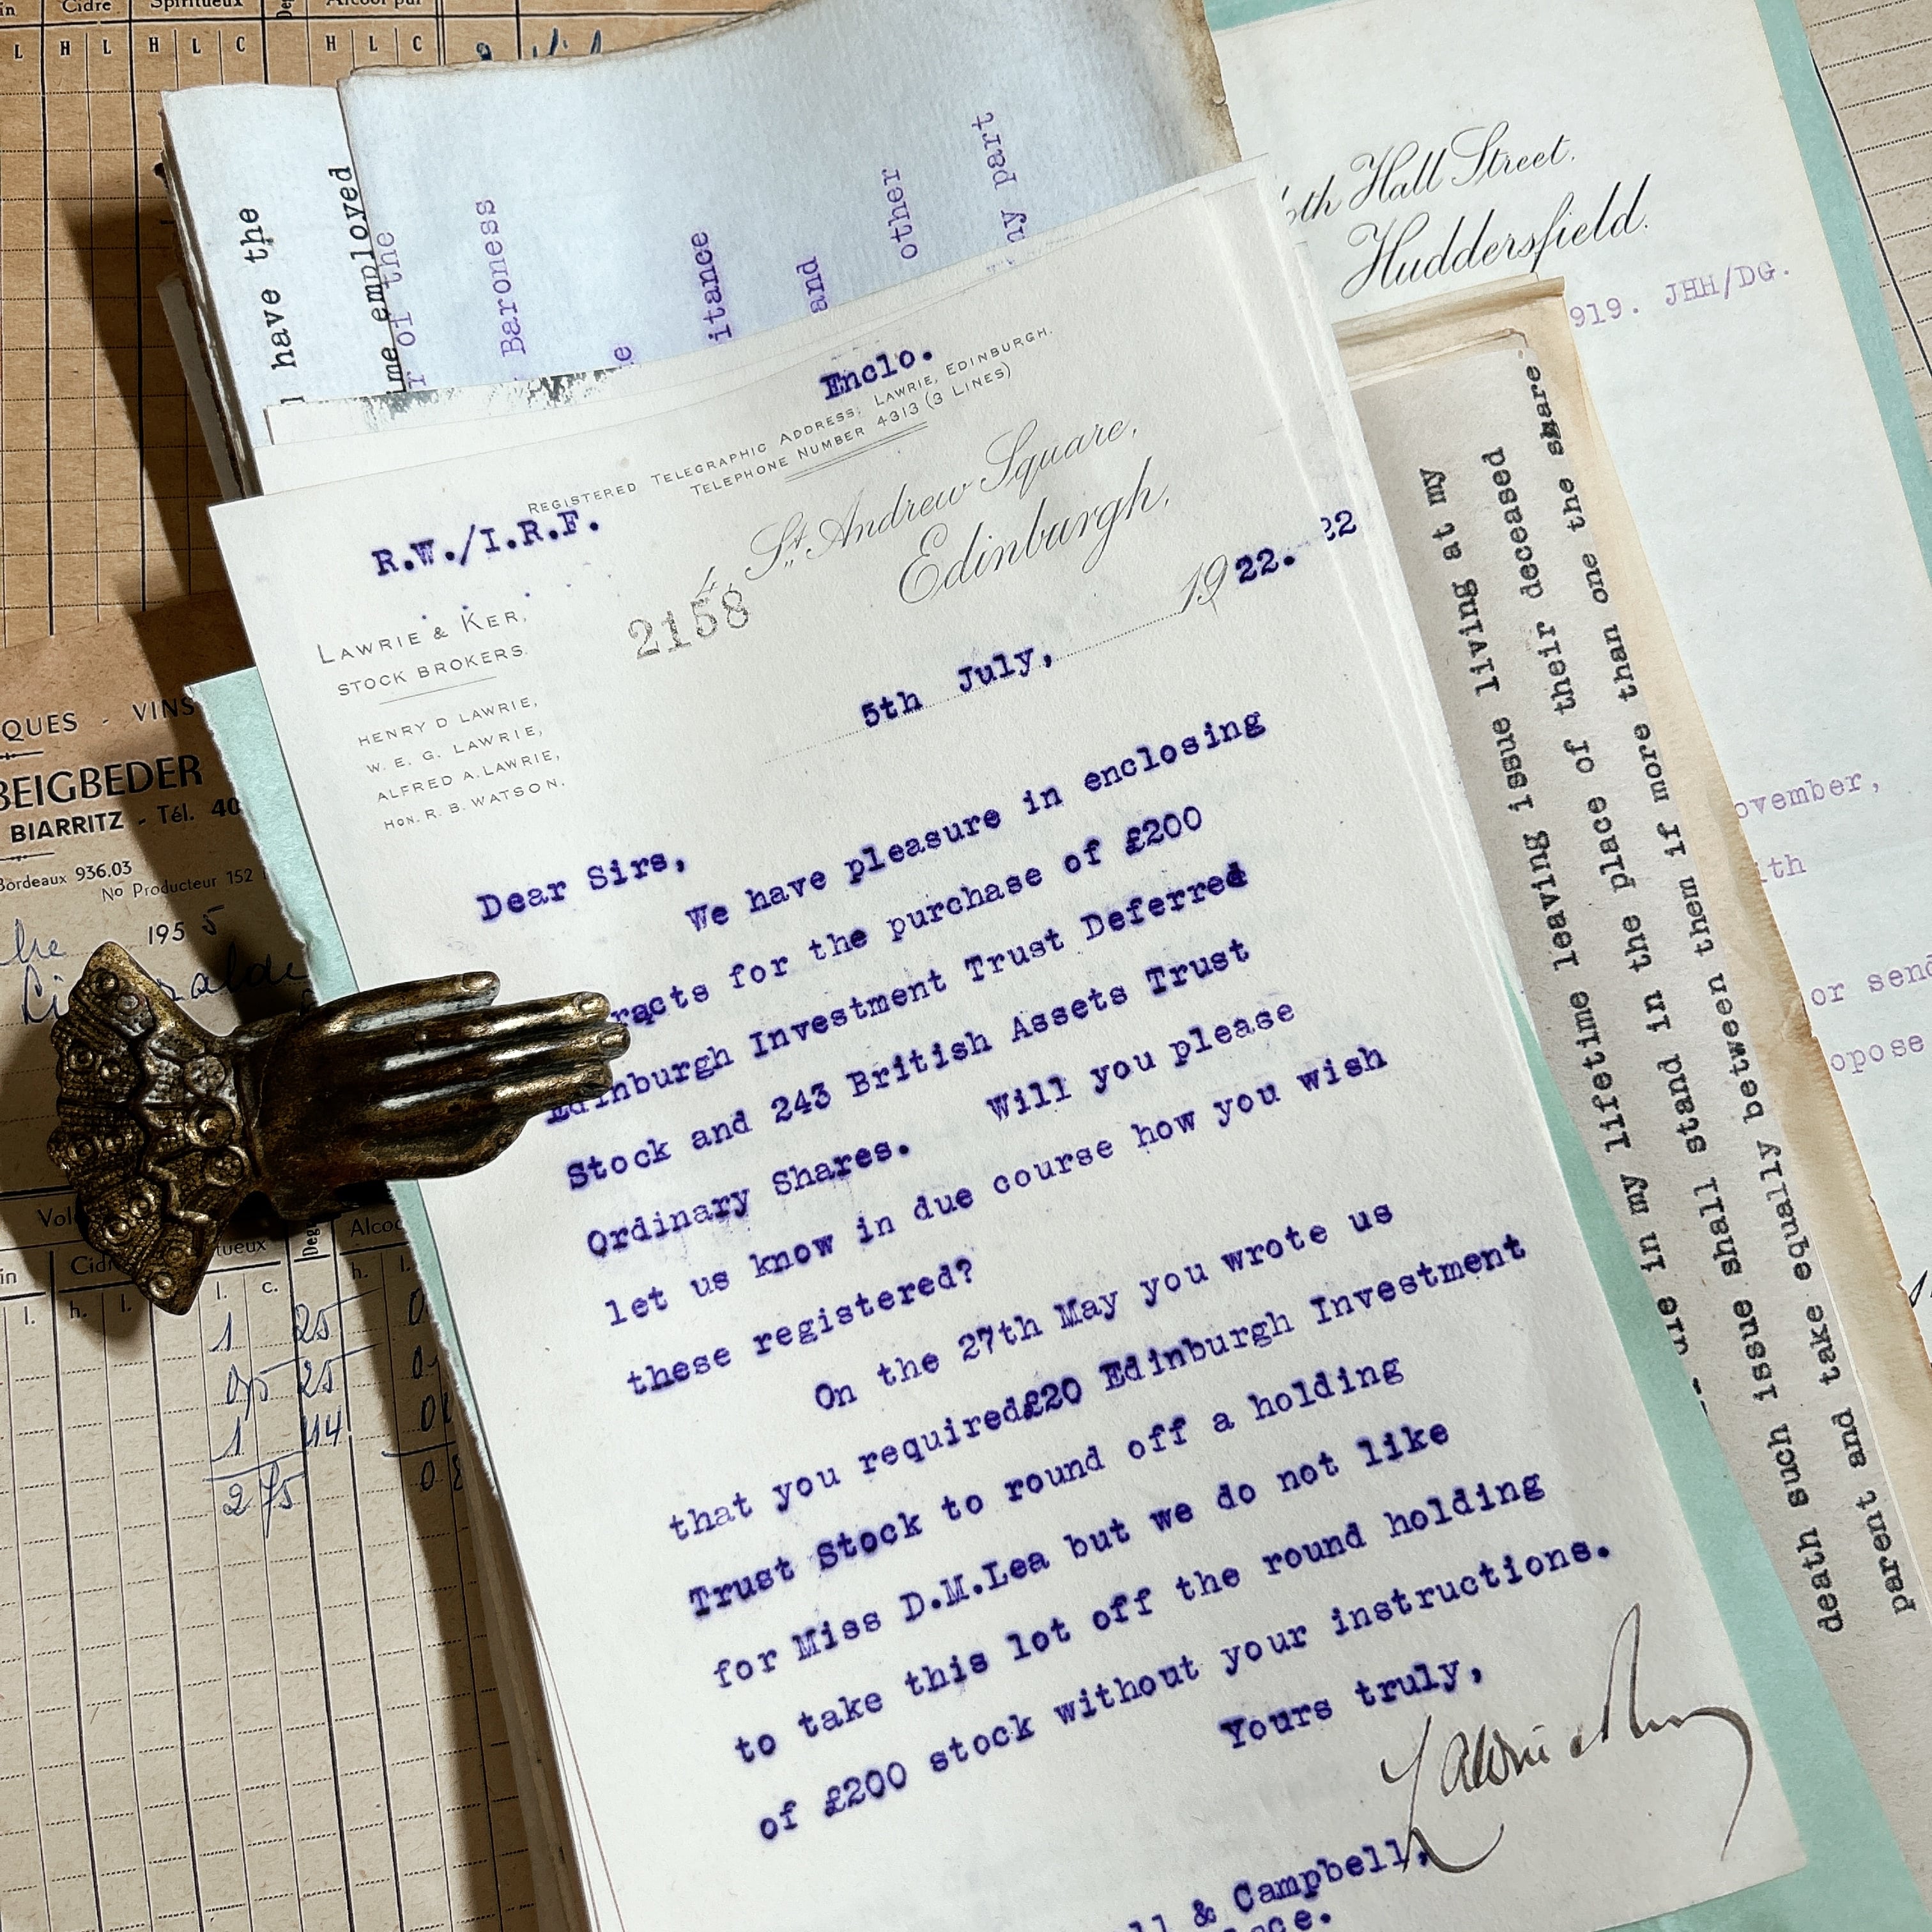 Cidre
Spiritueux
Alcool pur
L H L H L C H L C
have the
ime employed
of the
Baroness
itance
and
other
part
Hall Street.
Huddersfield.
919. JHH/DG.
Enclo.
REGISTERED TELEGRAPHIC ADDRESS: LAWRIE, EDINBURGH.
TELEPHONE NUMBER 4313 (3 LINES)
R.W./I.R.F.
4, St. Andrew Square,
Edinburgh,
2158
1922.
22
5th July,
LAWRIE & KER,
STOCK BROKERS.
HENRY D LAWRIE,
W. E. G. LAWRIE,
ALFRED A. LAWRIE,
HON. R. B. WATSON.
Dear Sirs,
We have pleasure in enclosing
racts for the purchase of £200
Edinburgh Investment Trust Deferred
Stock and 243 British Assets Trust
Ordinary Shares. Will you please
let us know in due course how you wish
these registered?
On the 27th May you wrote us
that you required£20 Edinburgh Investment
Trust Stock to round off a holding
for Miss D.M.Lea but we do not like
to take this lot off the round holding
of £200 stock without your instructions.
Yours truly,
Lawrie & Ker
ll & Campbell,
ace.
QUES - VINS
BEIGBEDER
BIARRITZ - Tél. 40
Bordeaux 936.03
No Producteur 152
1955
Cidre
tueux
Alcoo
h. l. l. c. h. l.
1 25
0,5 25
1 44
2 75
in my lifetime leaving issue living at my
death such issue shall stand in the place of their deceased
parent and take equally between them if more than one the share
ovember,
ith
or send
opose